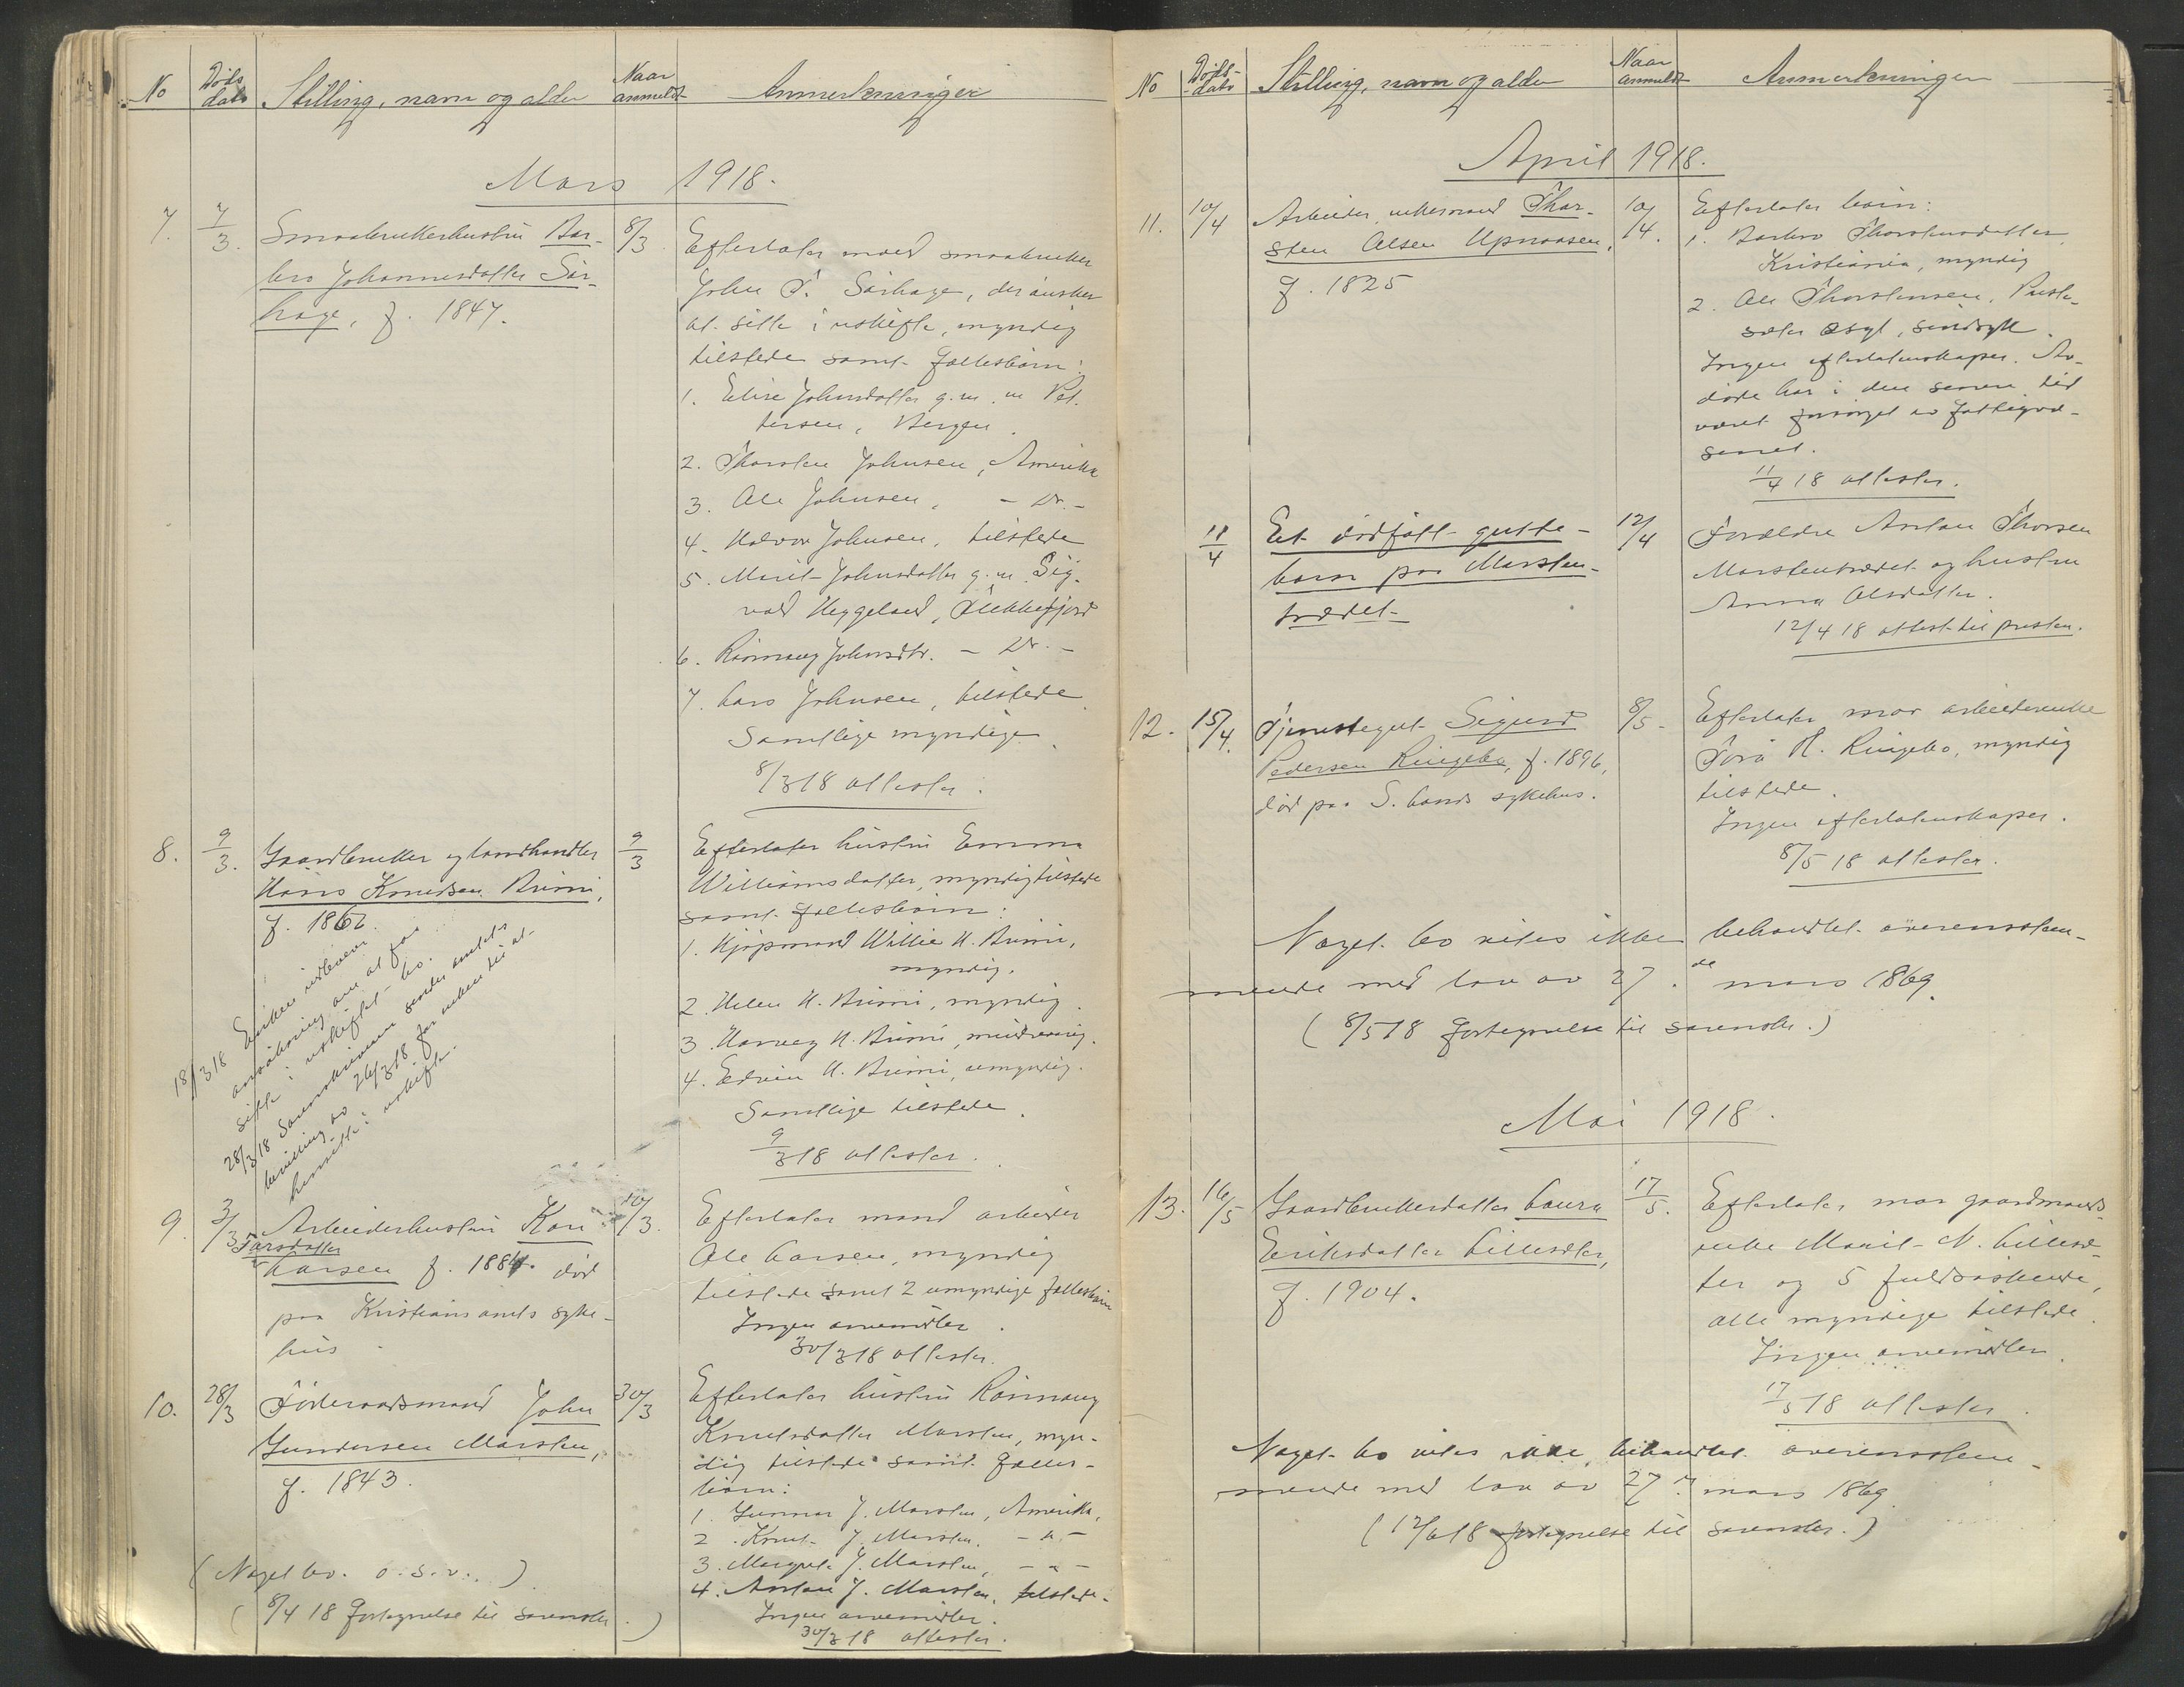 No Døds dato Stilling, navn og alder Naar anmeldt Anmerkninger
Mars 1918.
7. 7/3. Smaabrukerhustru Bar-
bro Johannesdatter Sør-
hage, f. 1847.
8/3
Efterlater mand smaabruker
John T. Sørhage, der ønsker
at sitte i uskifte, myndig
tilstede samt fællesbørn:
1. Elise Johnsdatter g. m. m Pet-
tersen, Bergen.
2. Thorsten Johnsen, Amerika
3. Ole Johnsen, - Do. -
4. Halvor Johnsen, tilstede
5. Marit Johnsdatter g. m. Sig-
vald Heggeland, Flekkefjord
6. Rønnaug Johnsdtr. - Do. -
7. Lars Johnsen, tilstede.
Samtlige myndige.
8/3 18 attester.
8. 9/3. Gaardbruker og landhandler
Hans Knudsen Brimi,
f. 1862.
9/3
Efterlater hustru Emma
Williamsdatter, myndig tilstede
samt fællesbørn:
1. Kjøpmand Willie H. Brimi,
myndig.
2. Helen H. Brimi, myndig.
3. Harvey H. Brimi, mindreaarig.
4. Edvin H. Brimi, umyndig.
Samtlige tilstede.
9/3 18 attester.
18/3 18 Enken indlever
ansøkning om at faa
sitte i uskiftet bo.
28/3 18 Sorenskriveren sender amtets
bevilling av 26/3 18 for enken til at
hensitte i uskifte.
9. 3/3 Arbeiderhustru Kari
Larsdatter
Larsen f. 1884. død
paa Kristiansamts syke-
hus.
30/3.
Efterlater mand arbeider
Ole Larsen, myndig
tilstede samt 2 umyndige fællesbørn
Ingen arvemidler.
30/3 18 attester.
10. 28/3 Føderaadsmand John
Gundersen Marsten,
f. 1843.
30/3
Efterlater hustru Rønnaug
Knutsdatter Marsten, myn-
dig tilstede samt fælles-
børn:
1. Gunnar J. Marsten, Amerika.
2. Knut J. Marsten. - " -
3. Margrete J. Marsten, - " -
4. Anton J. Marsten, tilstede.
Ingen arvemidler.
30/3 18 attester.
(Noget bo. o. s. v.. )
( 8/4 18 fortegnelse til sorenskr. )
No Døds- dato Stilling, navn og alder Naar anmeldt Anmerkninger
April 1918.
11. 10/4 Arbeider, enkemand Thor-
sten Olsen Upnaasen,
f. 1825
10/4.
Efterlater børn:
1. Barbro Thorstensdatter,
Kristiania, myndig
2. Ole Thorstensen, Preste-
sæter asyl, sindsyk.
Ingen efterlatenskaper. Av-
døde har i den senere tid
været forsørget av fattigvæ-
senet.
11/4 18 attester.
11/4 Et dødfødt gutte-
barn paa Marsten-
trædet
12/4
Forældre Anton Thorsen
Marstentrædet og hustru
Anna Olsdatter.
12/4 18 attest til presten.
12. 15/4. Tjenestegut Sigurd
Pedersen Ringebo, f. 1896,
død paa S. Lands sykehus.
8/5.
Efterlater mor arbeiderenke
Tora H. Ringebo, myndig
tilstede.
Ingen efterlatenskaper.
8/5 18 attester.
Noget bo vites ikke behandlet overensstem-
mende med lov av 27.de mars 1869.
( 8/5 18 fortegnelse til sorenskr.)
Mai 1918.
13. 16/5 Gaardbrukerdatter Laura
Eriksdatter Lillesæter,
f. 1904.
17/5.
Efterlater mor gaardmands-
enke Marit N. Lillesæ-
ter og 5 fuldsøskende,
alle myndige tilstede.
Ingen arvemidler.
17/5 18 attester.
Noget bo vites ikke behandlet overensstem-
mende med lov av 27. mars 1869.
( 12/6 18 fortegnelse til sorenskr.)